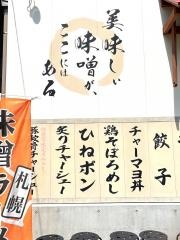 美味しい
味噌が、
ここには
ある
餃子
チャーマヨ丼
鶏そぼろめし
ひねポン
炙りチャーシュー
豚蛟膏チャーシュー
札幌
味噌ラーメン